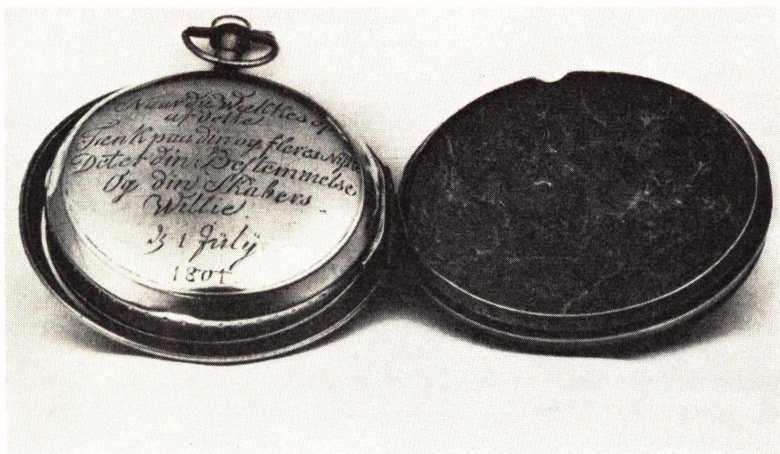 Naar du Wækkes op
af Dette
Tænk paa din og fleres Nytte
Det er din Bestemmelse
Og din Skabers
Willie
1 July
1801